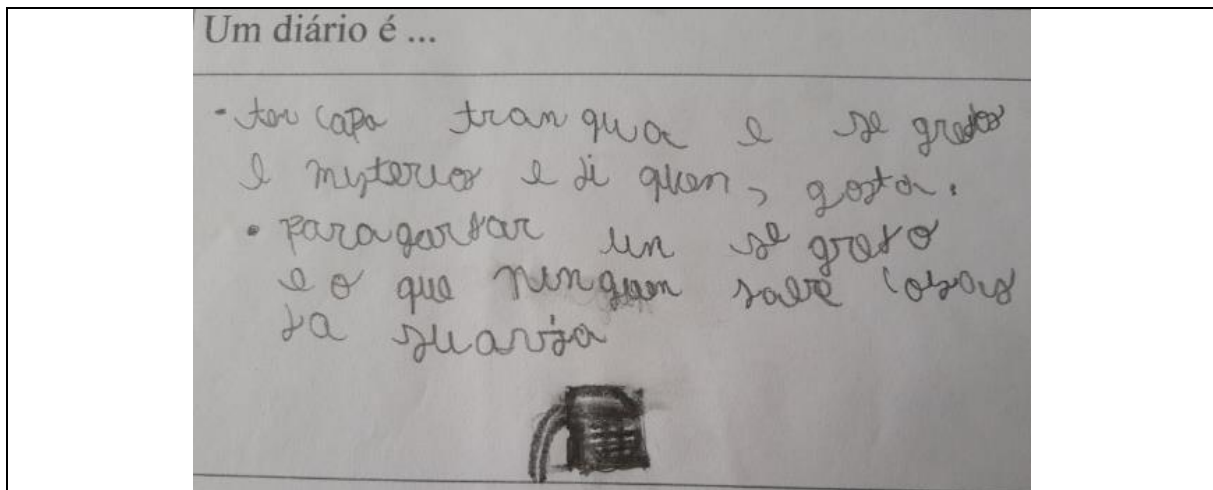 Um diário é ...
• ter capa tranqua e se gredos
e mysterios e di quen, gosta.
• para gardar un se gredo
e o que ninguen sabe coisas
da sua vida